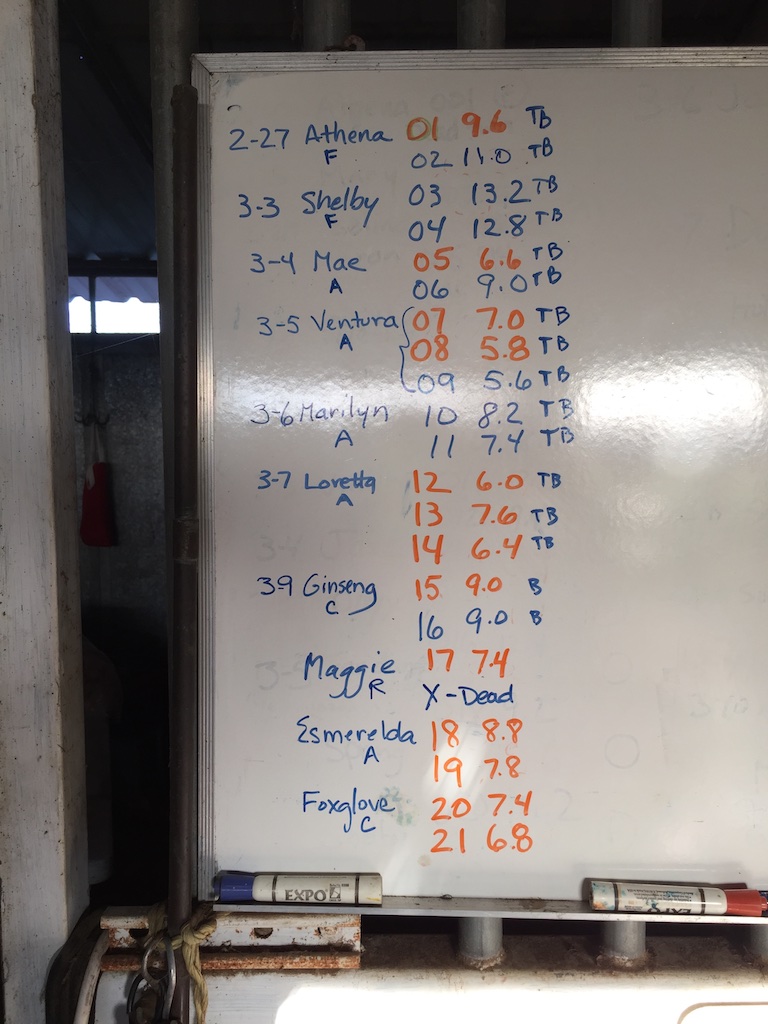 2-27 Athena 01 9.6 TB
F 02 11.0 TB
3-3 Shelby 03 13.2 TB
F 04 12.8 TB
3-4 Mae 05 6.6 TB
A 06 9.0 TB
3-5 Ventura 07 7.0 TB
A 08 5.8 TB
09 5.6 TB
3-6 Marilyn 10 8.2 TB
A 11 7.4 TB
3-7 Loretta 12 6.0 TB
A 13 7.6 TB
14 6.4 TB
3-9 Ginseng 15 9.0 B
C 16 9.0 B
Maggie 17 7.4
R X-Dead
Esmerelda 18 8.8
A 19 7.8
Foxglove 20 7.4
C 21 6.8
EXPO
EXPO